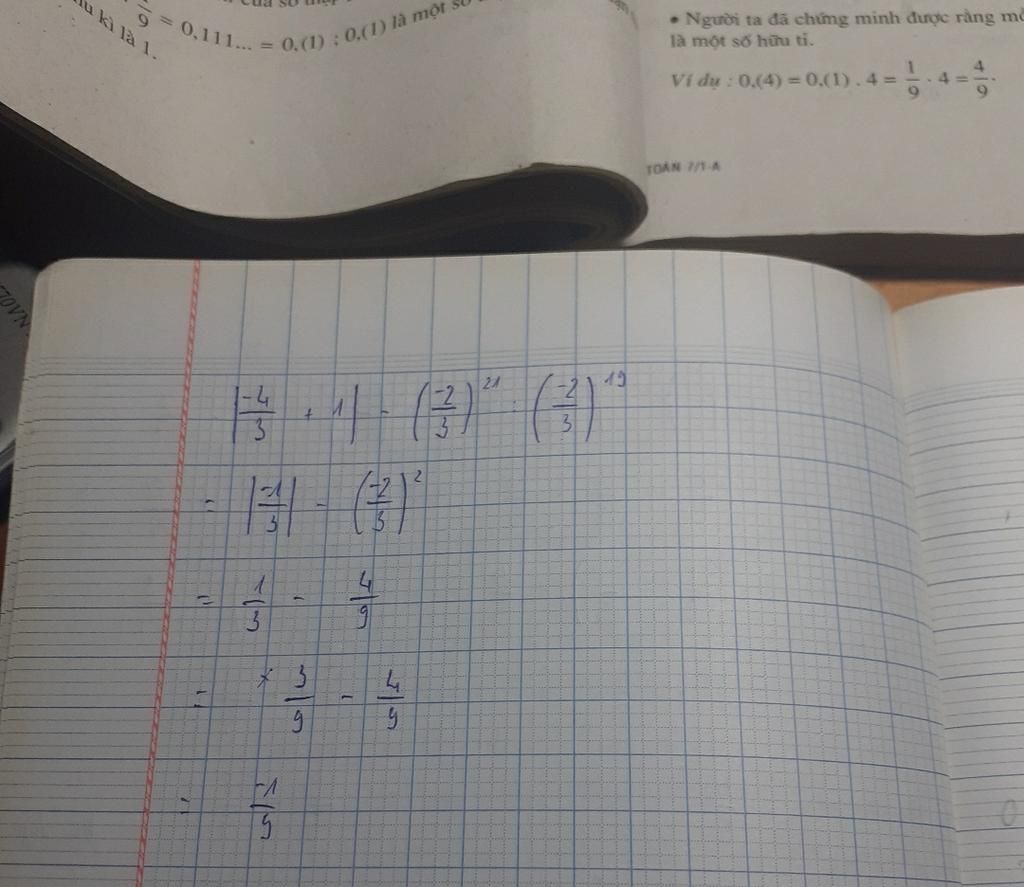 1/9 = 0,111... = 0,(1) ; 0,(1) là một số
kì là 1.
• Người ta đã chứng minh được rằng
là một số hữu tỉ.
Ví dụ : 0,(4) = 0,(1) . 4 = 1/9 . 4 = 4/9.
TOÁN 7/1-A
|-4/3 + 1| - (-2/3)^21 : (-2/3)^19
= |-1/3| - (-2/3)^2
= 1/3 - 4/9
= 3/9 - 4/9
= -1/9